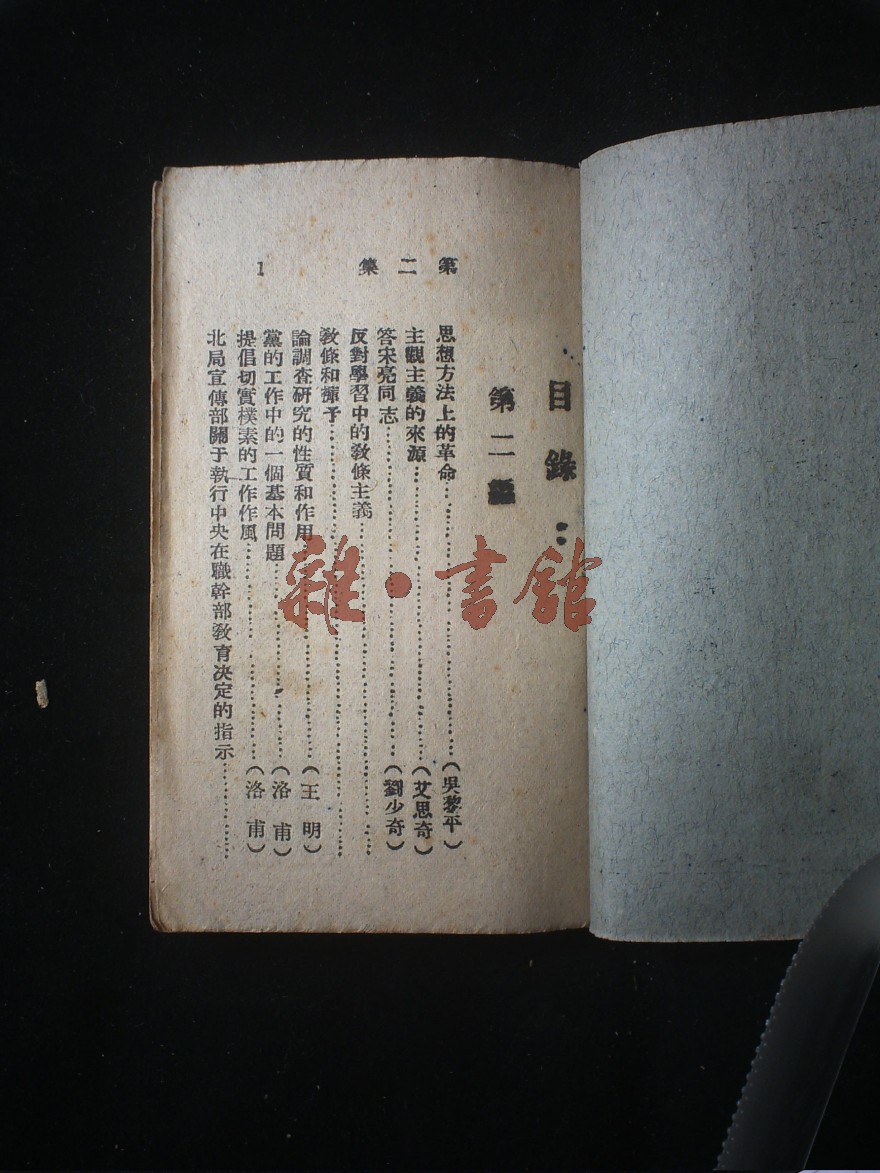 目錄：
第二
第二集 1
思想方法上的革命……（吳黎平）
主觀主義的來源……（艾思奇）
答宋亮同志……（劉少奇）
反對學習中的教條主義……
教條和褲子……
論調查研究的性質和作用……（王明）
黨的工作中的一個基本問題……（洛甫）
提倡切實樸素的工作作風……（洛甫）
北局宣傳部關于執行中央在職幹部教育決定的指示……
雜·書館